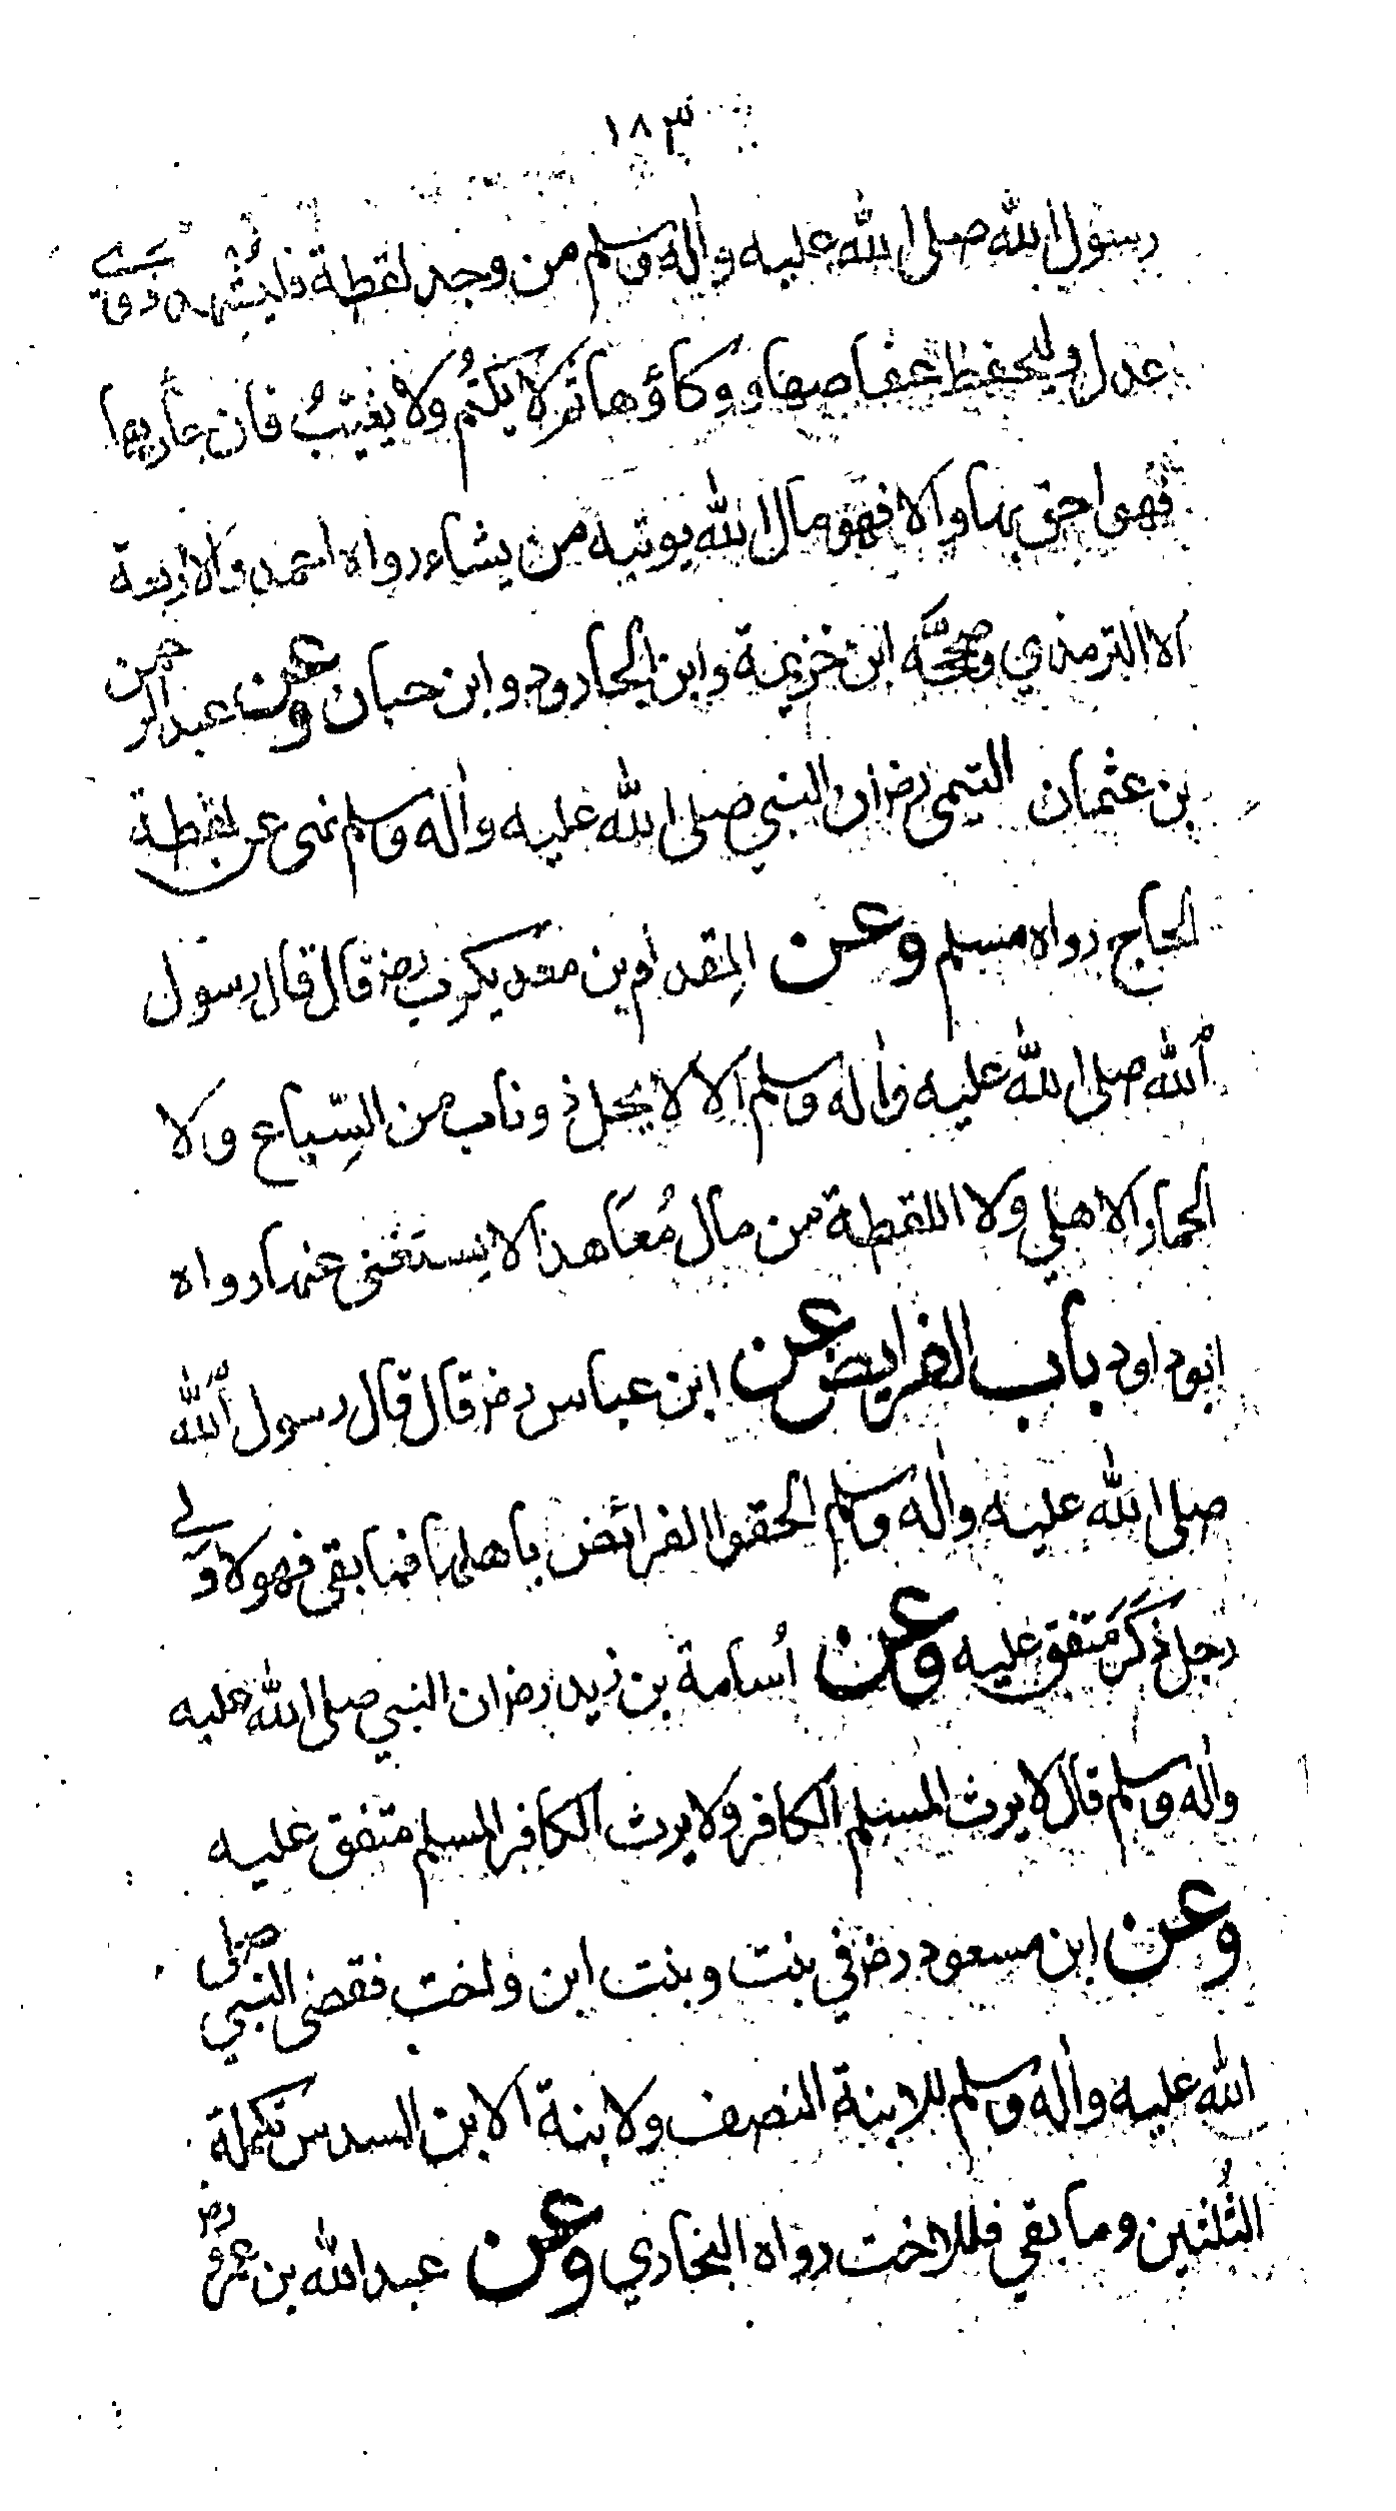 ١٨٣
رسول الله صلى الله عليه وآله وسلم من وجد لقطة فليُشهد ذوي
عدل وليحفظ عفاصها ووكاؤها ثم لا يكتُم ولا يغيّبُ فان جاء ربها
فهو احق بها والا فهو مال الله يوتيه من يشاء رواه احمد والاربعة
الا الترمذي وصححه ابن خزيمة وابن الجارود وابن حبان وعن عبد الرحمن
بن عثمان التيمى رض ان النبي صلى الله عليه وآله وسلم نهى عن لقطة
الحاج رواه مسلم وعن المِقدام بن معديكرب رض قال قال رسول
الله صلى الله عليه وآله وسلم الا لا يحل ذو ناب من السِّباع ولا
الحمار الاهلي ولا اللقطة من مال مُعاهد الا يستغنى عنها رواه
ابوداود باب الفرايض عن ابن عباس رض قال قال رسول الله
صلى الله عليه وآله وسلم الحقوا الفرائض باهلها فما بقى فهو لاولى
رجل ذكر متفق عليه وعن اُسامة بن زيد رض ان النبي صلى الله عليه
وآله وسلم قال لا يرث المسلم الكافر ولا يرث الكافر المسلم متفق عليه
وعن ابن مسعود رض في بنت وبنت ابن واخت فقضى النبي صلى
الله عليه وآله وسلم للابنة النصف ولابنة الابن السدس تكملة
الثُلثين وما بقي فللاخت رواه البخاري وعن عبد الله بن عمرو رض